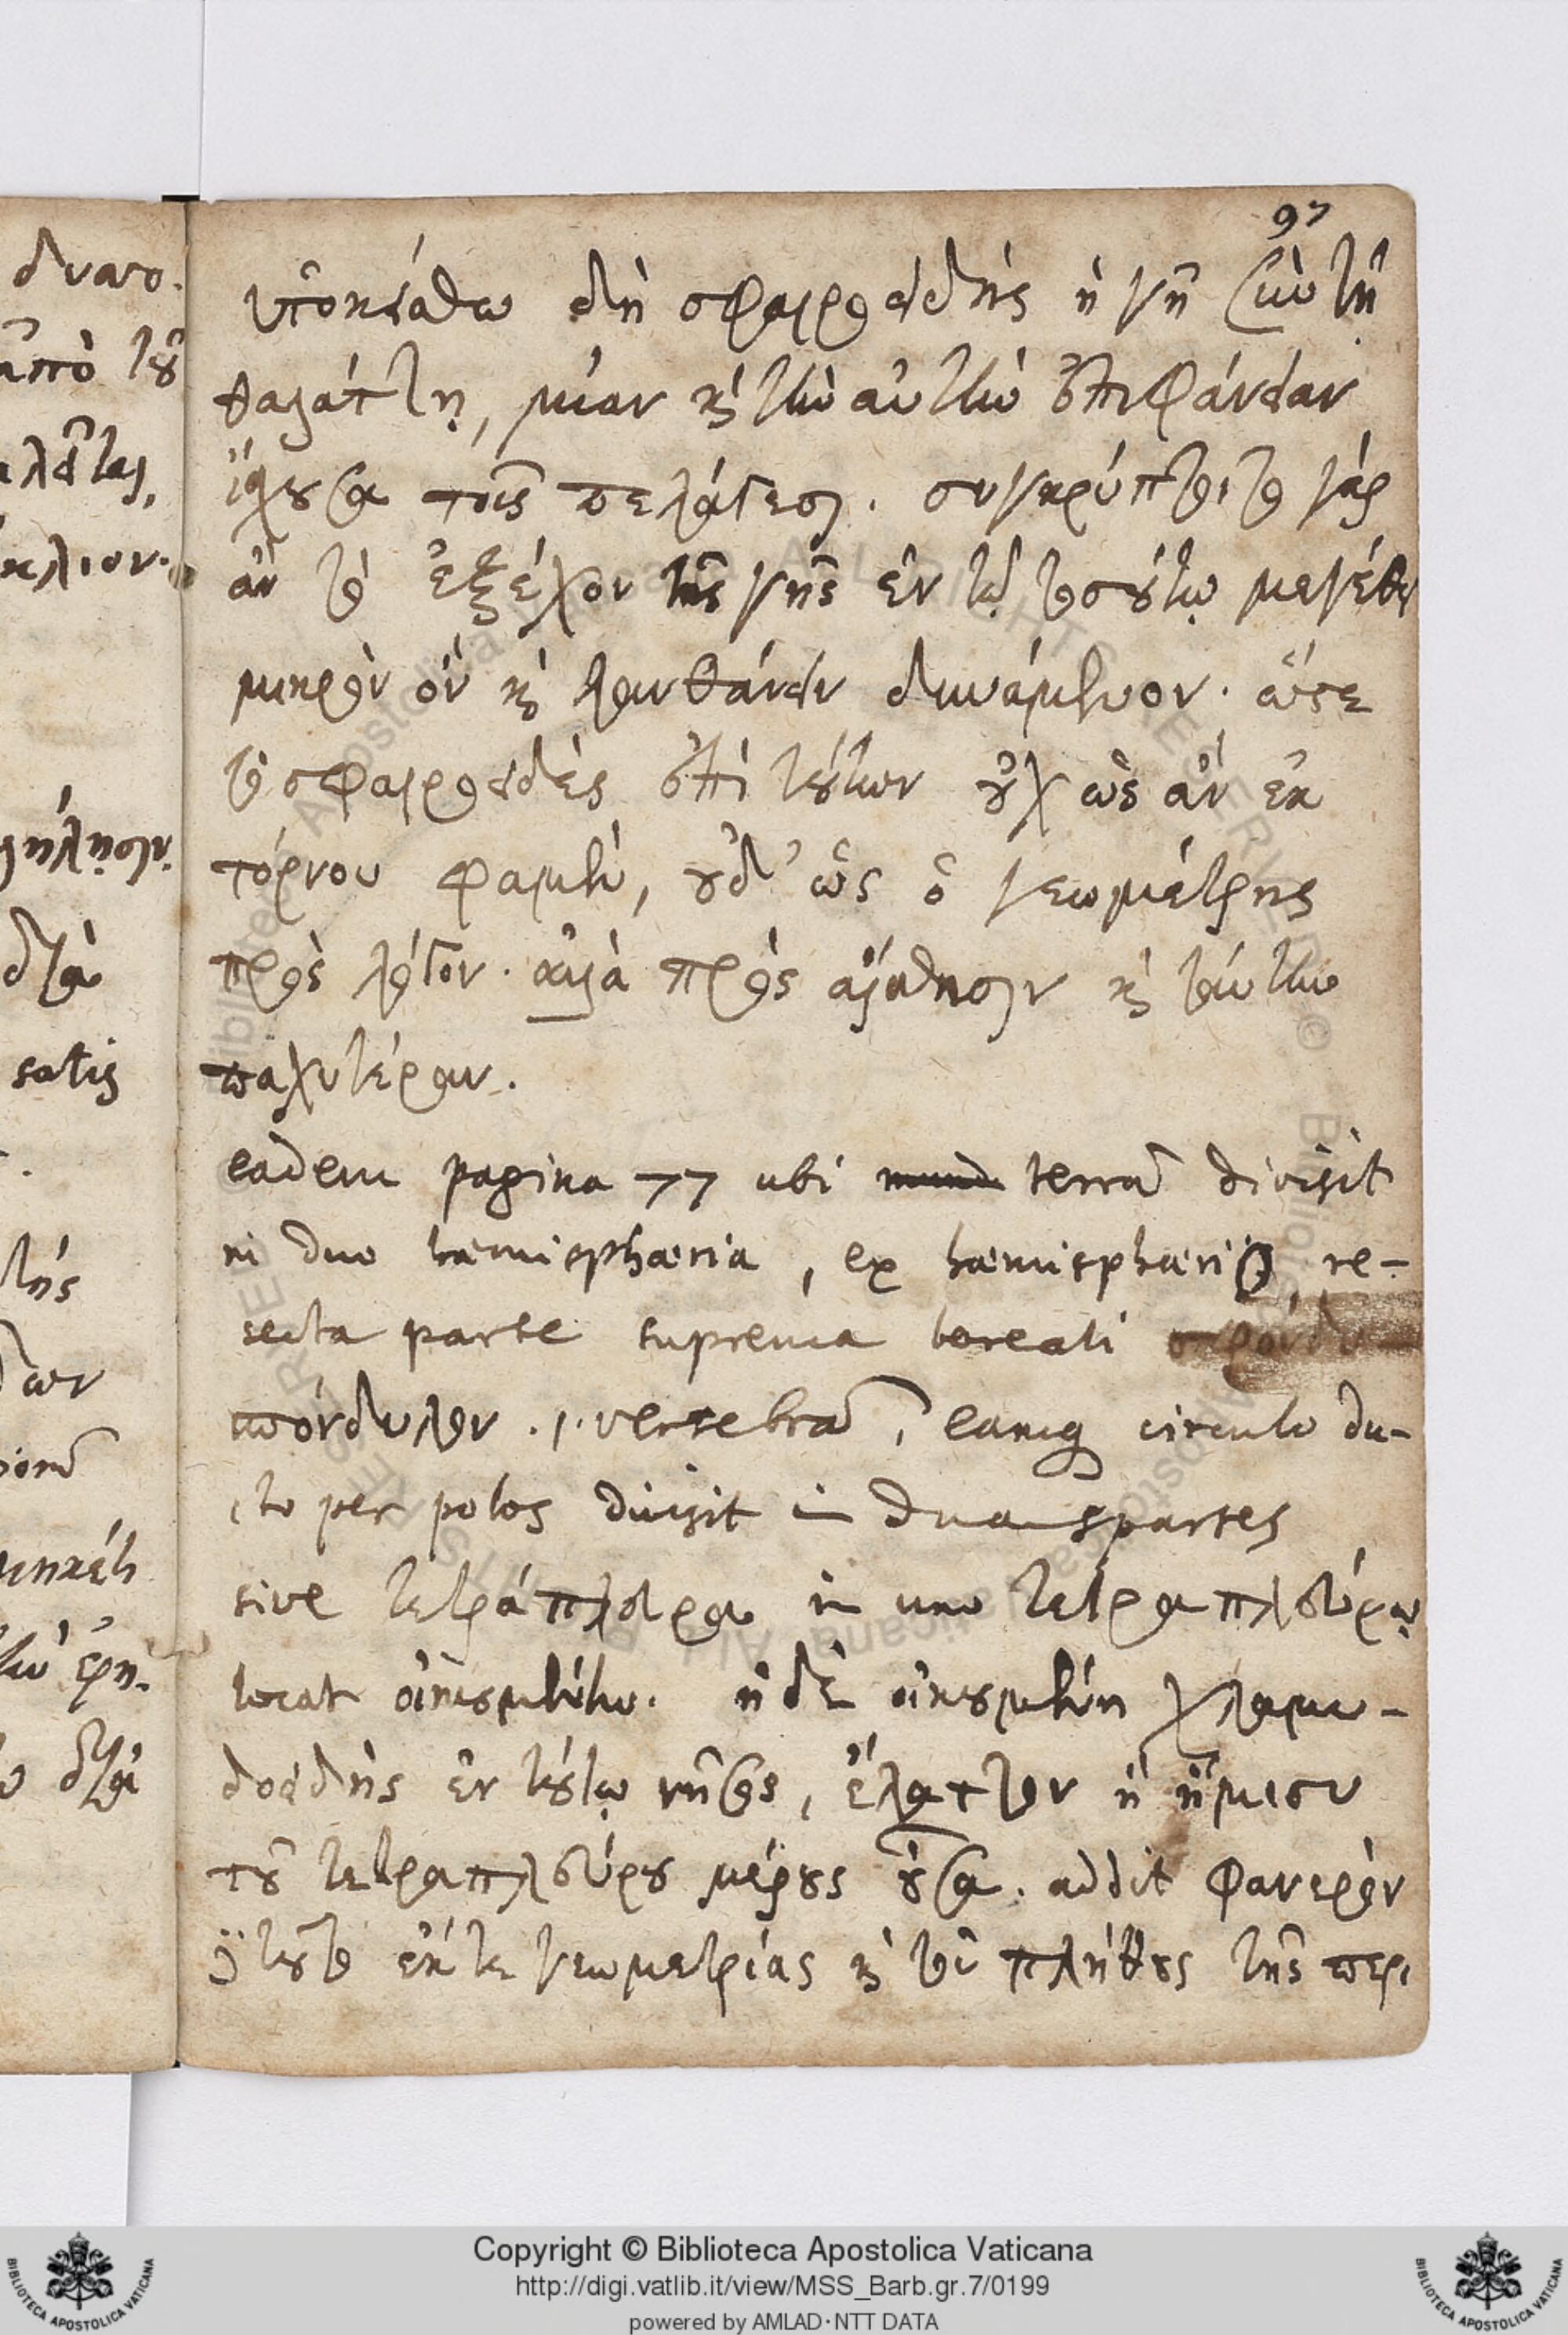 97
ὑποκείσθω δὴ σφαιροειδὴς ἡ γῆ σὺν τῇ
θαλάττῃ, μίαν καὶ τὴν αὐτὴν ἐπιφάνειαν
ἴσχουσα τοῖς πελάγεσι. συγκρύπτοιτο γὰρ
ἂν τὸ ἐξέχον τῆς γῆς ἐν τῷ τοσούτῳ μεγέθει
μικρὸν ὂν καὶ λανθάνειν δυνάμενον. ὥστε
τὸ σφαιροειδὲς ἐπὶ τούτων οὐχ ὡς ἂν ἐκ
τόρνου φαμὲν, οὐδ' ὡς ὁ γεωμέτρης
πρὸς λόγον. ἀλλὰ πρὸς αἴσθησιν καὶ ταύτην
παχυτέραν.
eadem pagina 77 ubi terrã divisit
in duo hæmisphæria, ex hæmisphærio re-
secta parte suprema boreali
σπόνδυλον .i. vertebrã, eamq circulo du-
cto per polos divisit in duas partes
sive τετράπλευρα in uno τετραπλεύρῳ
locat οἰκουμένην. ἡ δὲ οἰκουμένη χλαμυ-
δοειδὴς ἐν τούτῳ νῆσος, ἔλαττον ἢ ἥμισυ
τοῦ τετραπλεύρου μέρους οὖσα. addit φανερὸν
δὲ τοῦτο ἔκ τε γεωμετρίας καὶ τοῦ πλήθους τῆς περι
δυναιο.
ἀπὸ τοῦ
δῖὰ
satis
της
δων
Copyright © Biblioteca Apostolica Vaticana
http://digi.vatlib.it/view/MSS_Barb.gr.7/0199
powered by AMLAD·NTT DATA
BIBLIOTECA APOSTOLICA VATICANA
BIBLIOTECA APOSTOLICA VATICANA